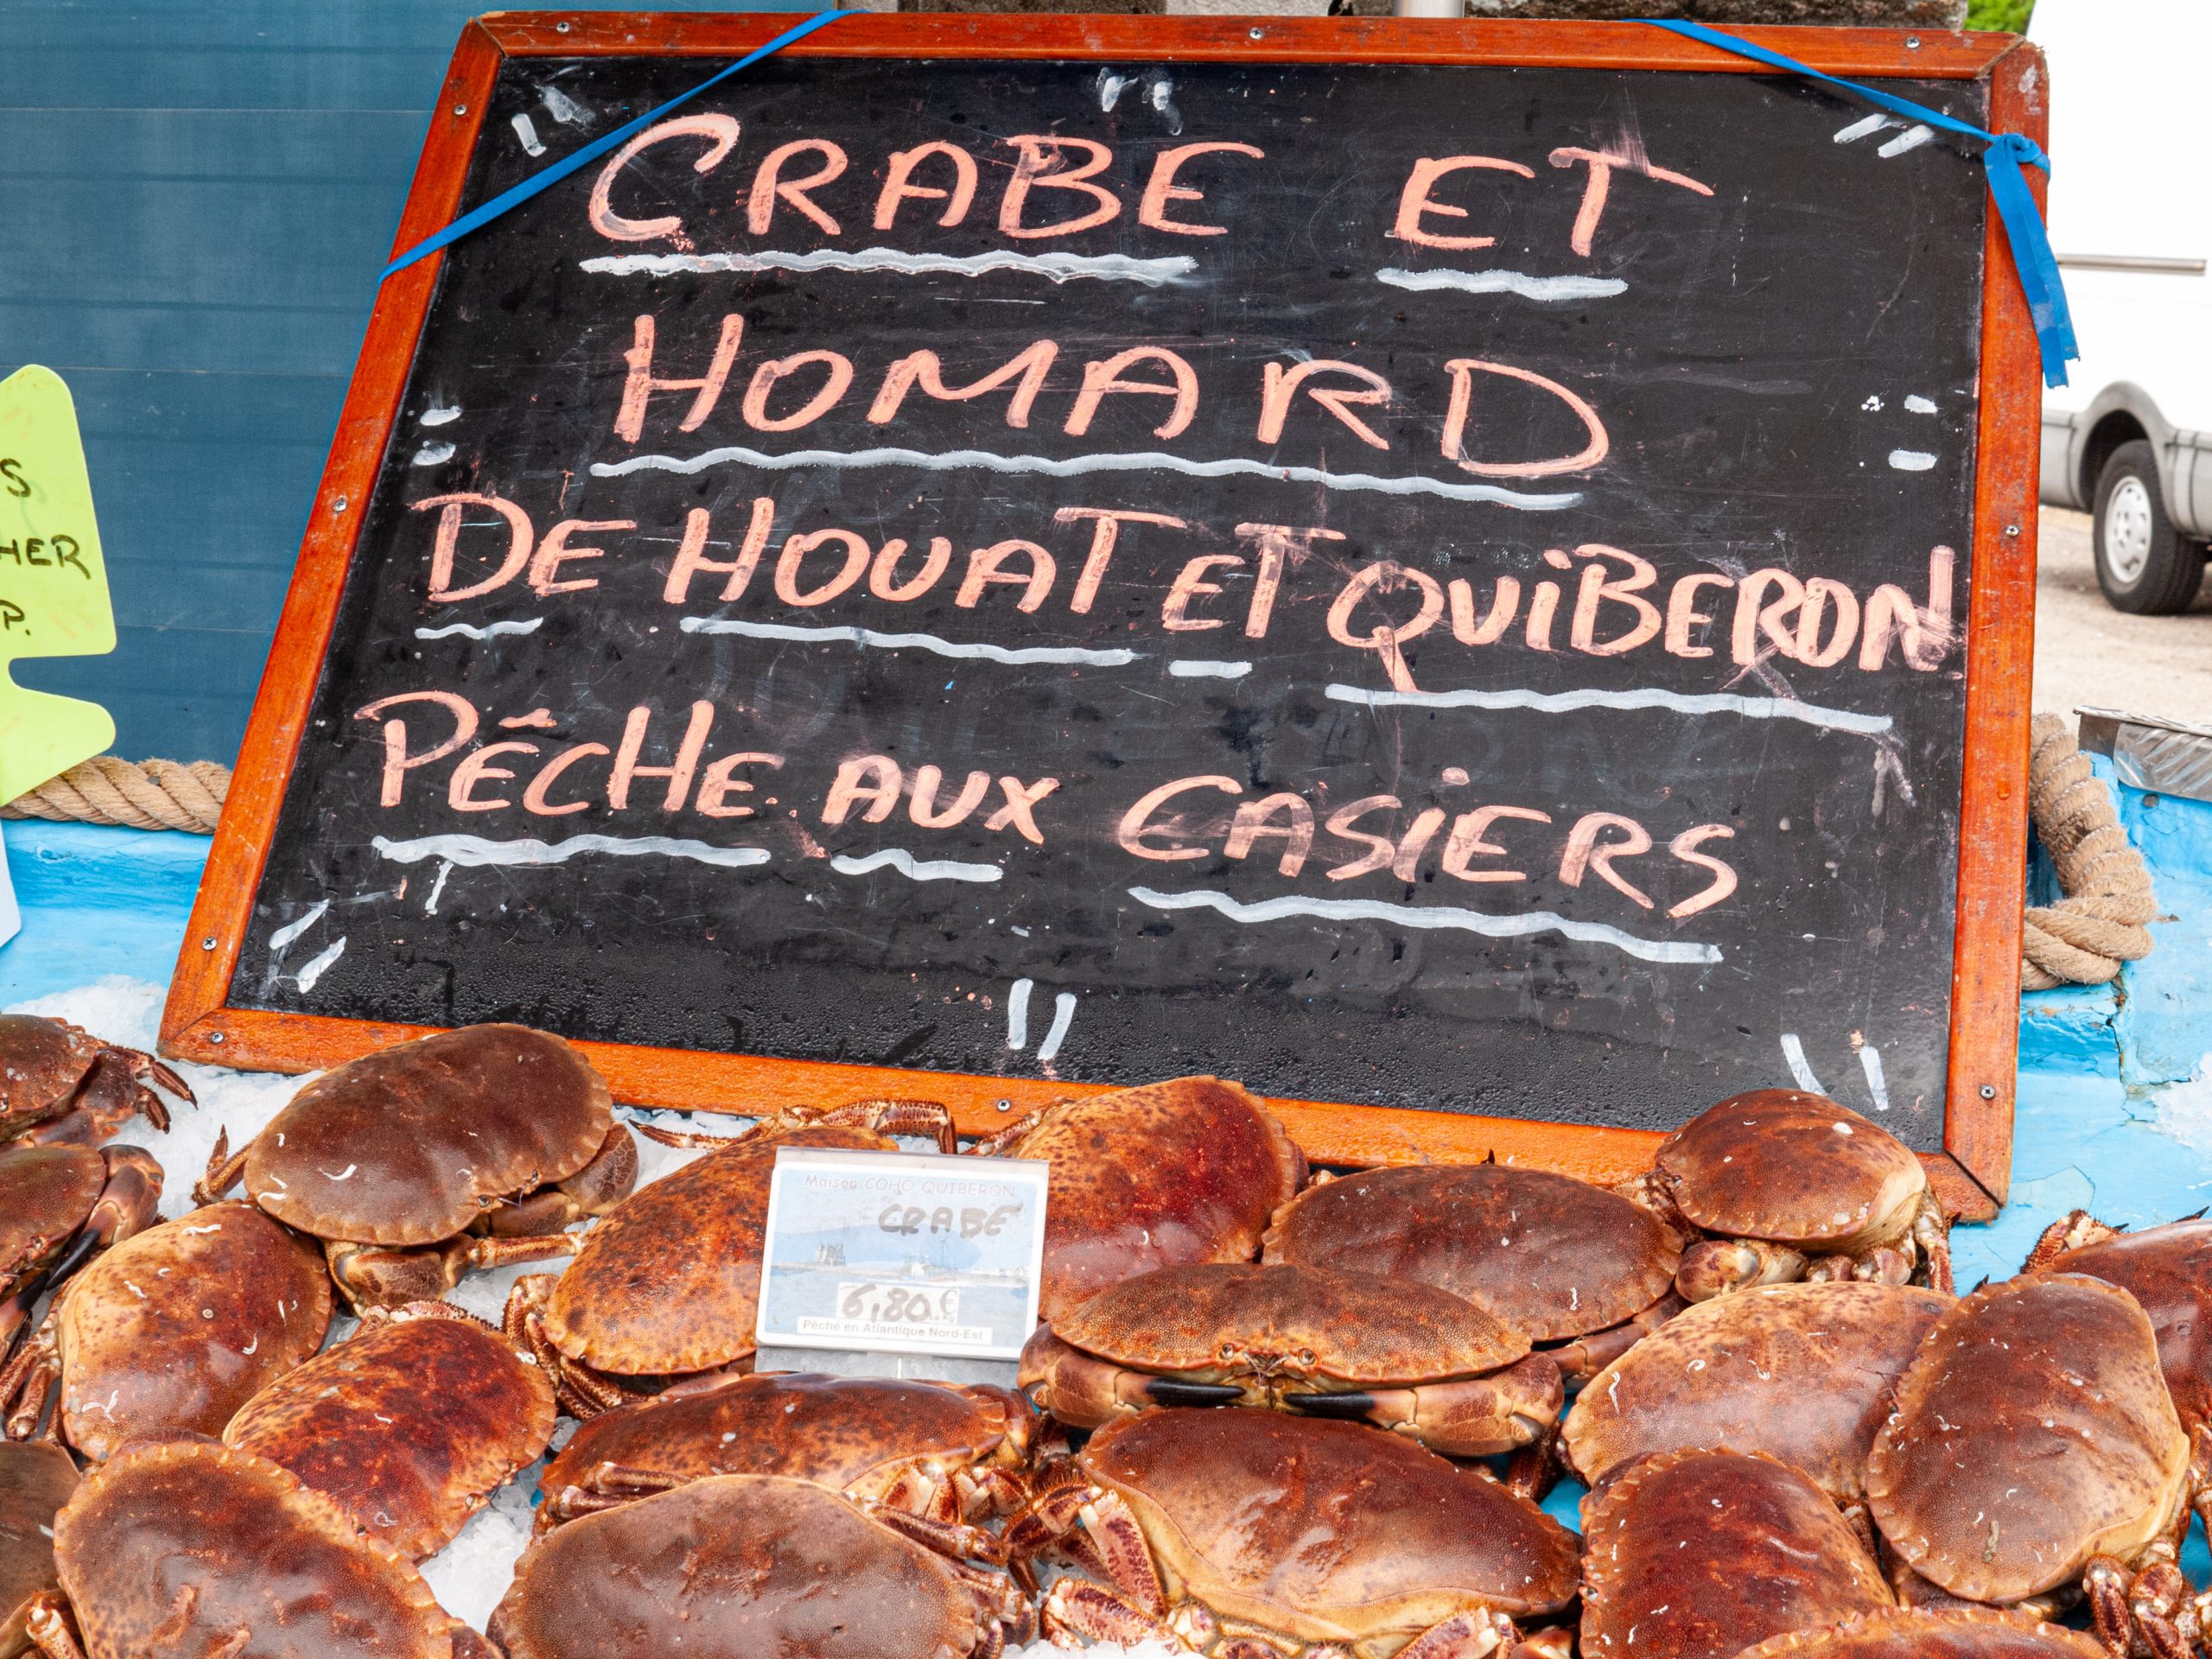 CRABE ET
HOMARD
DE HOUAT ET QUiBERON
PÊCHE AUX CASiERS
S
HER
P.
Maison COHO QUIBERON
CRABE
6,80 €
Pêché en Atlantique Nord-Est